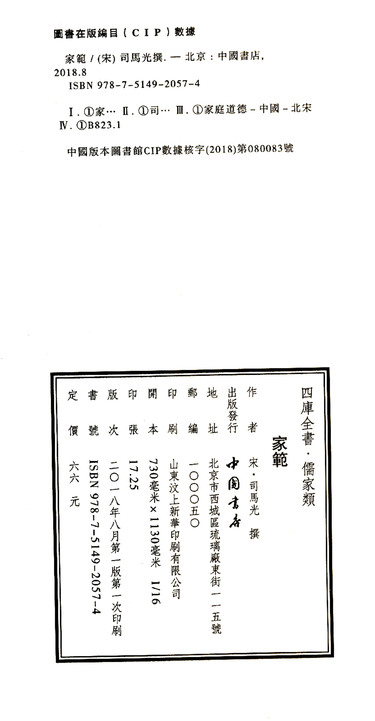 圖書在版編目（CIP）數據
家範 / (宋) 司馬光撰. — 北京：中國書店，
2018.8
ISBN 978-7-5149-2057-4
Ⅰ. ①家… Ⅱ. ①司… Ⅲ. ①家庭道德－中國－北宋
Ⅳ. ①B823.1
中國版本圖書館CIP數據核字(2018)第080083號
四庫全書·儒家類
家範
作者 宋·司馬光 撰
出版發行 中國書店
地址 北京市西城區琉璃廠東街一一五號
郵編 一〇〇〇五〇
印刷 山東汶上新華印刷有限公司
開本 730毫米×1130毫米 1/16
印張 17.25
版次 二〇一八年八月第一版第一次印刷
書號 ISBN 978-7-5149-2057-4
定價 六六元